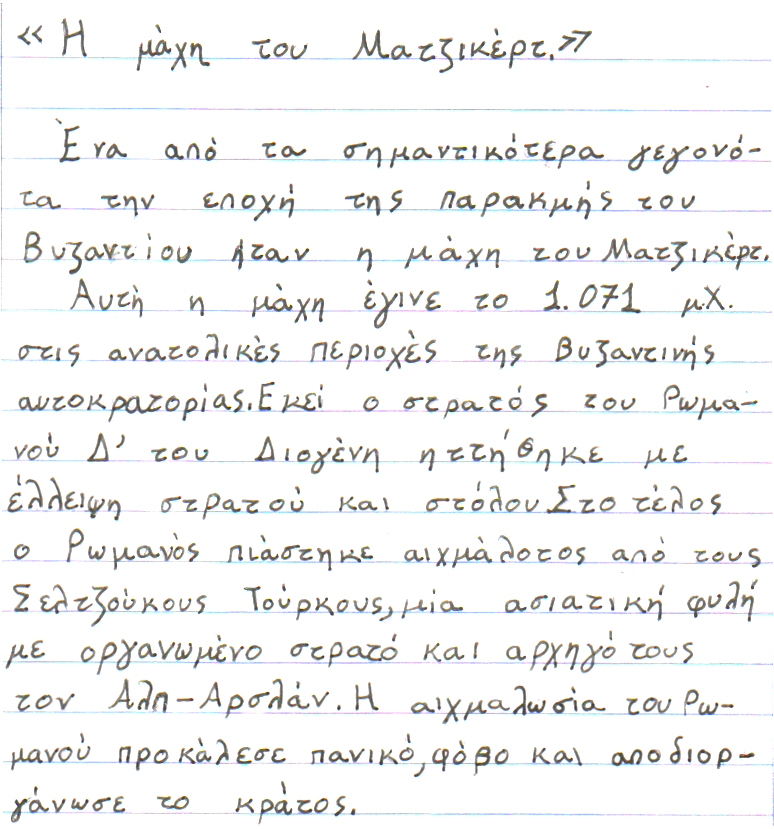 «Η μάχη του Ματζικέρτ.»
Ένα από τα σημαντικότερα γεγονό-
τα την εποχή της παρακμής του
Βυζαντίου ήταν η μάχη του Ματζικέρτ.
Αυτή η μάχη έγινε το 1.071 μ.Χ.
στις ανατολικές περιοχές της Βυζαντινής
αυτοκρατορίας. Εκεί ο στρατός του Ρωμα-
νού Δ' του Διογένη ηττήθηκε με
έλλειψη στρατού και στόλου. Στο τέλος
ο Ρωμανός πιάστηκε αιχμάλοτος από τους
Σελτζούκους Τούρκους, μία ασιατική φυλή
με οργανωμένο στρατό και αρχηγό τους
τον Αλπ-Αρσλάν. Η αιχμαλωσία του Ρω-
μανού προκάλεσε πανικό, φόβο και αποδιορ-
γάνωσε το κράτος.